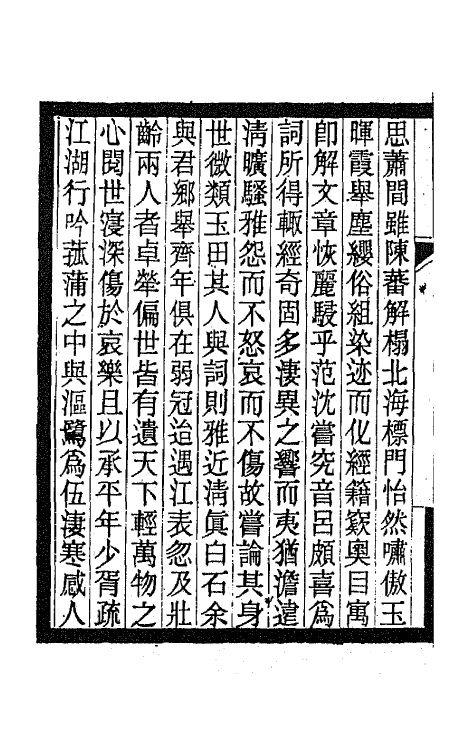 思蕭閒雖陳蕃解榻北海標門怡然嘯傲玉
暉霞舉塵纓俗組染迹而化經籍窽奧目寓
卽解文章恢麗駸乎范沈嘗究音呂頗喜爲
詞所得輒經奇固多淒異之響而夷猶澹遠
淸曠騷雅怨而不怒哀而不傷故嘗論其身
世微類玉田其人與詞則雅近淸眞白石余
與君鄉舉齊年俱在弱冠迨遇江表忽及壯
齡兩人者卓犖偏世皆有遺天下輕萬物之
心閱世寖深傷於哀樂且以承平年少胥疏
江湖行吟菰蒲之中與漚鷺爲伍淒寒感人